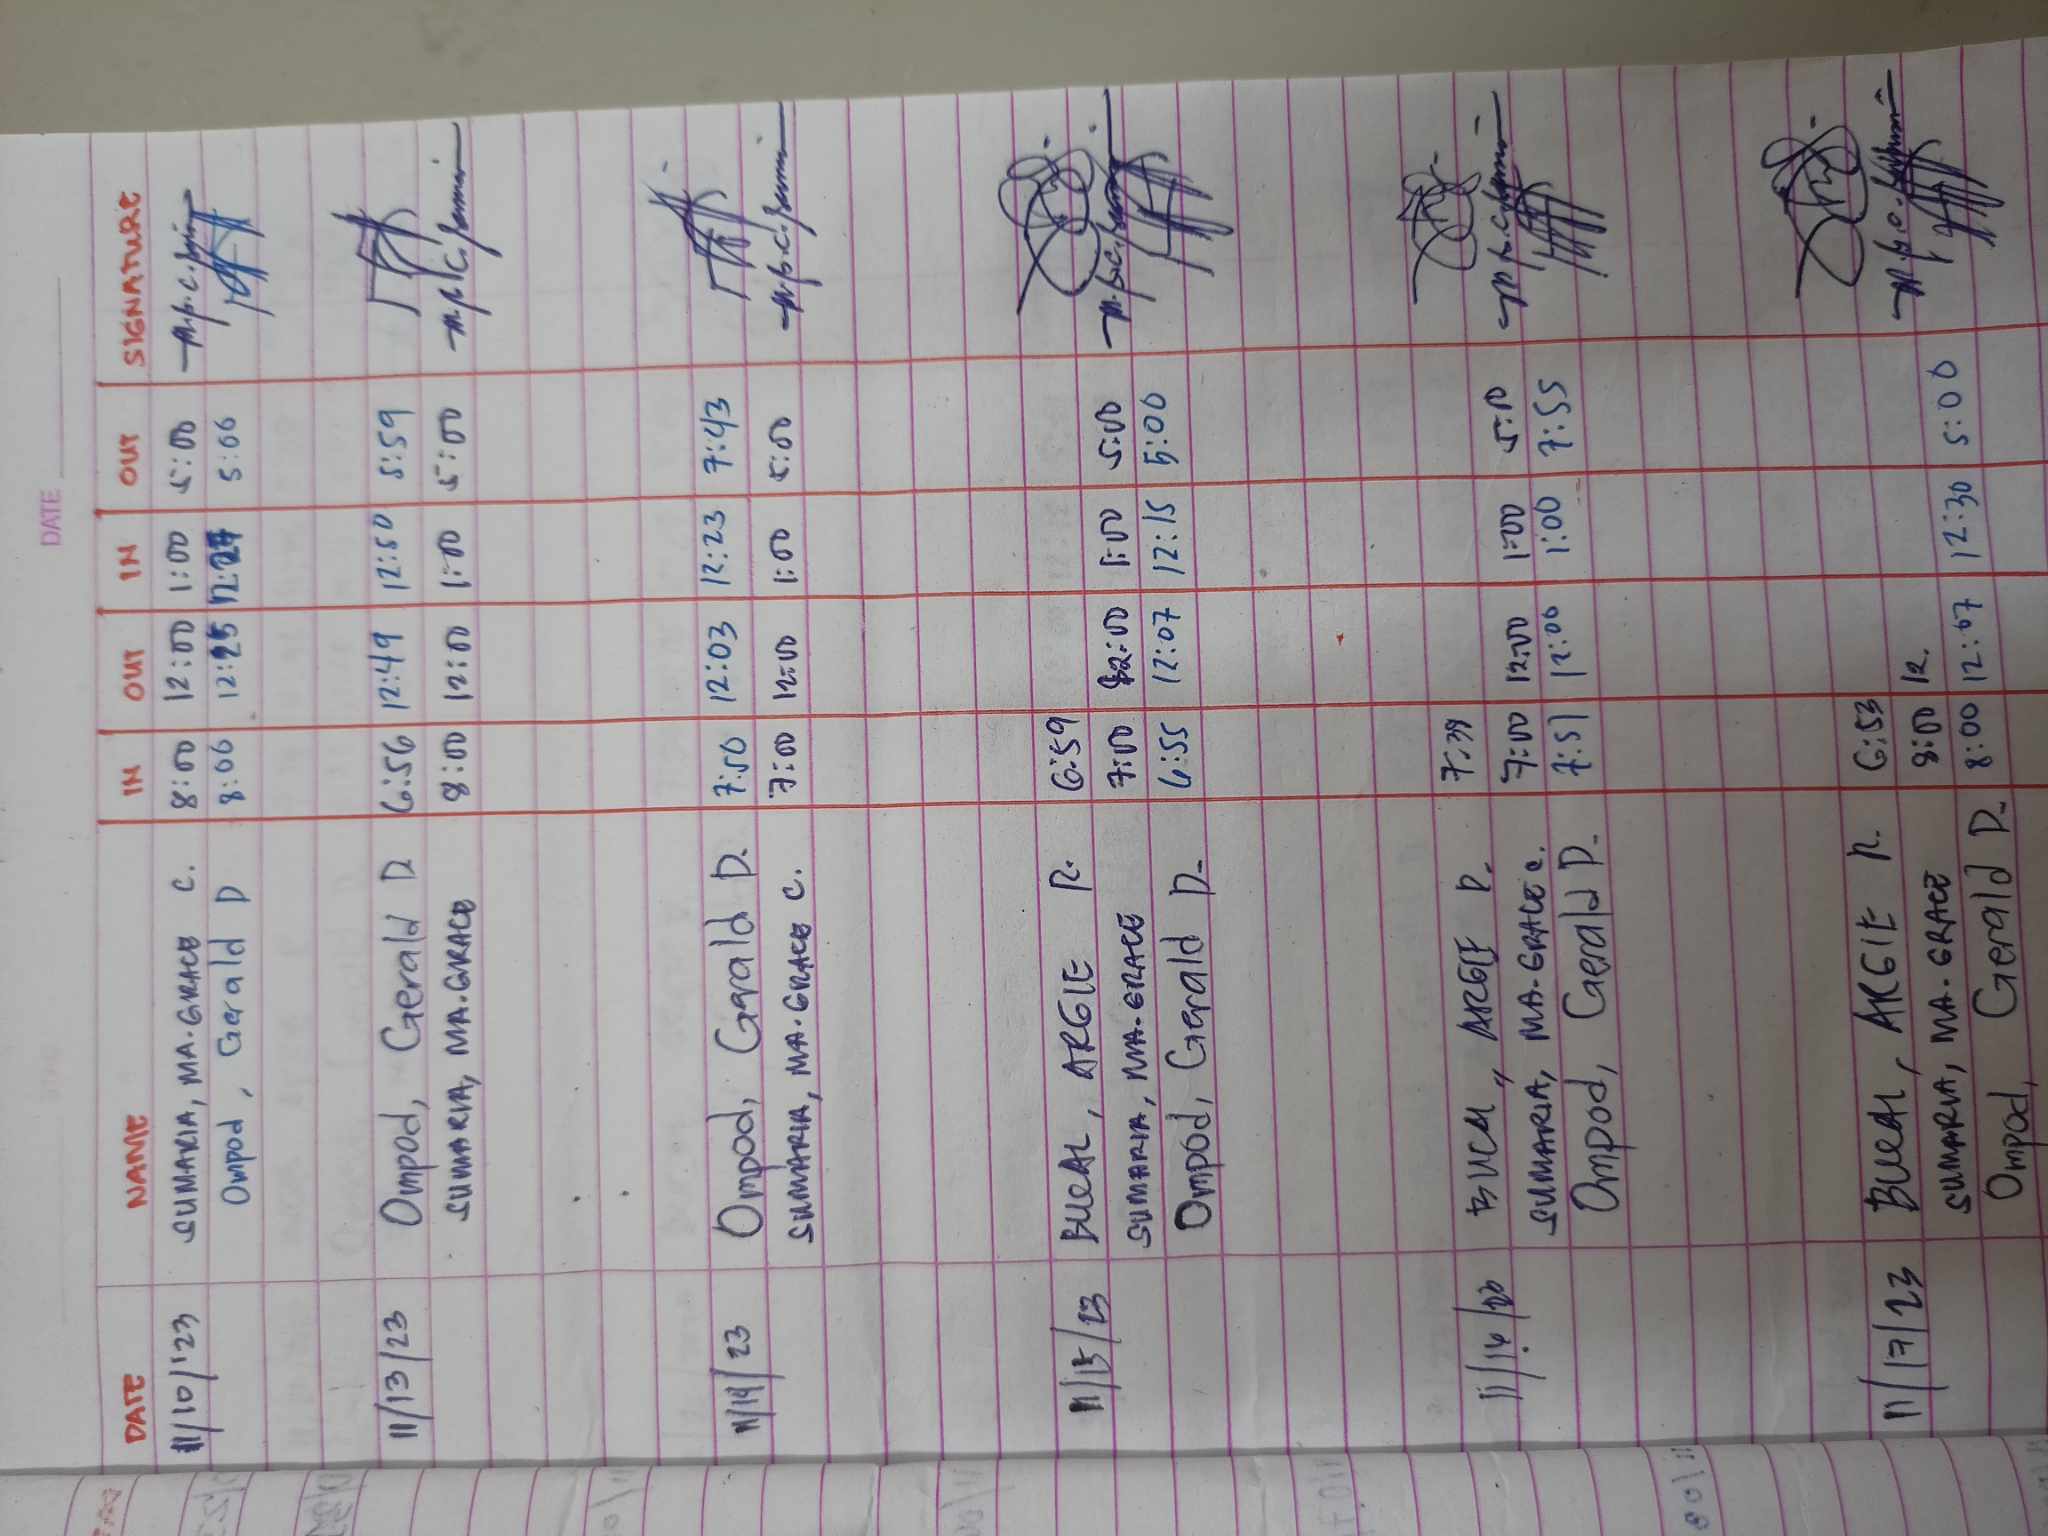 DATE
DATE NAME IN OUT IN OUT SIGNATURE
11/10/'23 SUMARIA, MA. GRACE C. 8:00 12:00 1:00 5:00
Ompod, Gerald D 8:06 12:25 12:27 5:06
11/13/23 Ompod, Gerald D 6:56 12:49 12:50 5:59
SUMARIA, MA. GRACE 8:00 12:00 1:00 5:00
11/14/23 Ompod, Gerald D. 7:50 12:03 12:23 7:43
SUMARIA, MA. GRACE C. 7:00 12:00 1:00 5:00
11/15/23 BUCAL, ARGIE P. 6:59
SUMARIA, MA. GRACE 7:00 12:00 1:00 5:00
Ompod, Gerald D. 6:55 12:07 12:15 5:00
11/16/23 BUCAL, ARGIE P. 7:39
SUMARIA, MA. GRACE C. 7:00 12:00 1:00 5:10
Ompod, Gerald D. 7:51 12:06 1:00 7:55
11/17/23 BUCAL, ARGIE P. 6:53
SUMARIA, MA. GRACE 8:00 12.
Ompod, Gerald D. 8:00 12:07 12:30 5:00